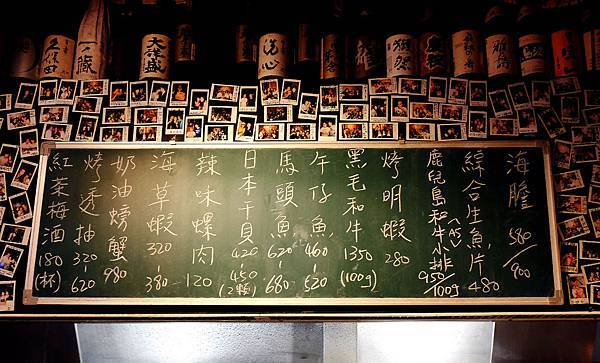 久保田
一緣
大洋盛
洗心
海膽 580/900
綜合生魚片 480
鹿兒島和牛小排(A5) 950/100g
烤明蝦 280
黑毛和牛 1350 (100g)
午仔魚 460-520
馬頭魚 620-680
日本干貝 420-450 (2顆)
辣味螺肉 120
海草蝦 320-380
奶油螃蟹 980
烤透抽 320-620
紅茶梅酒 180(杯)